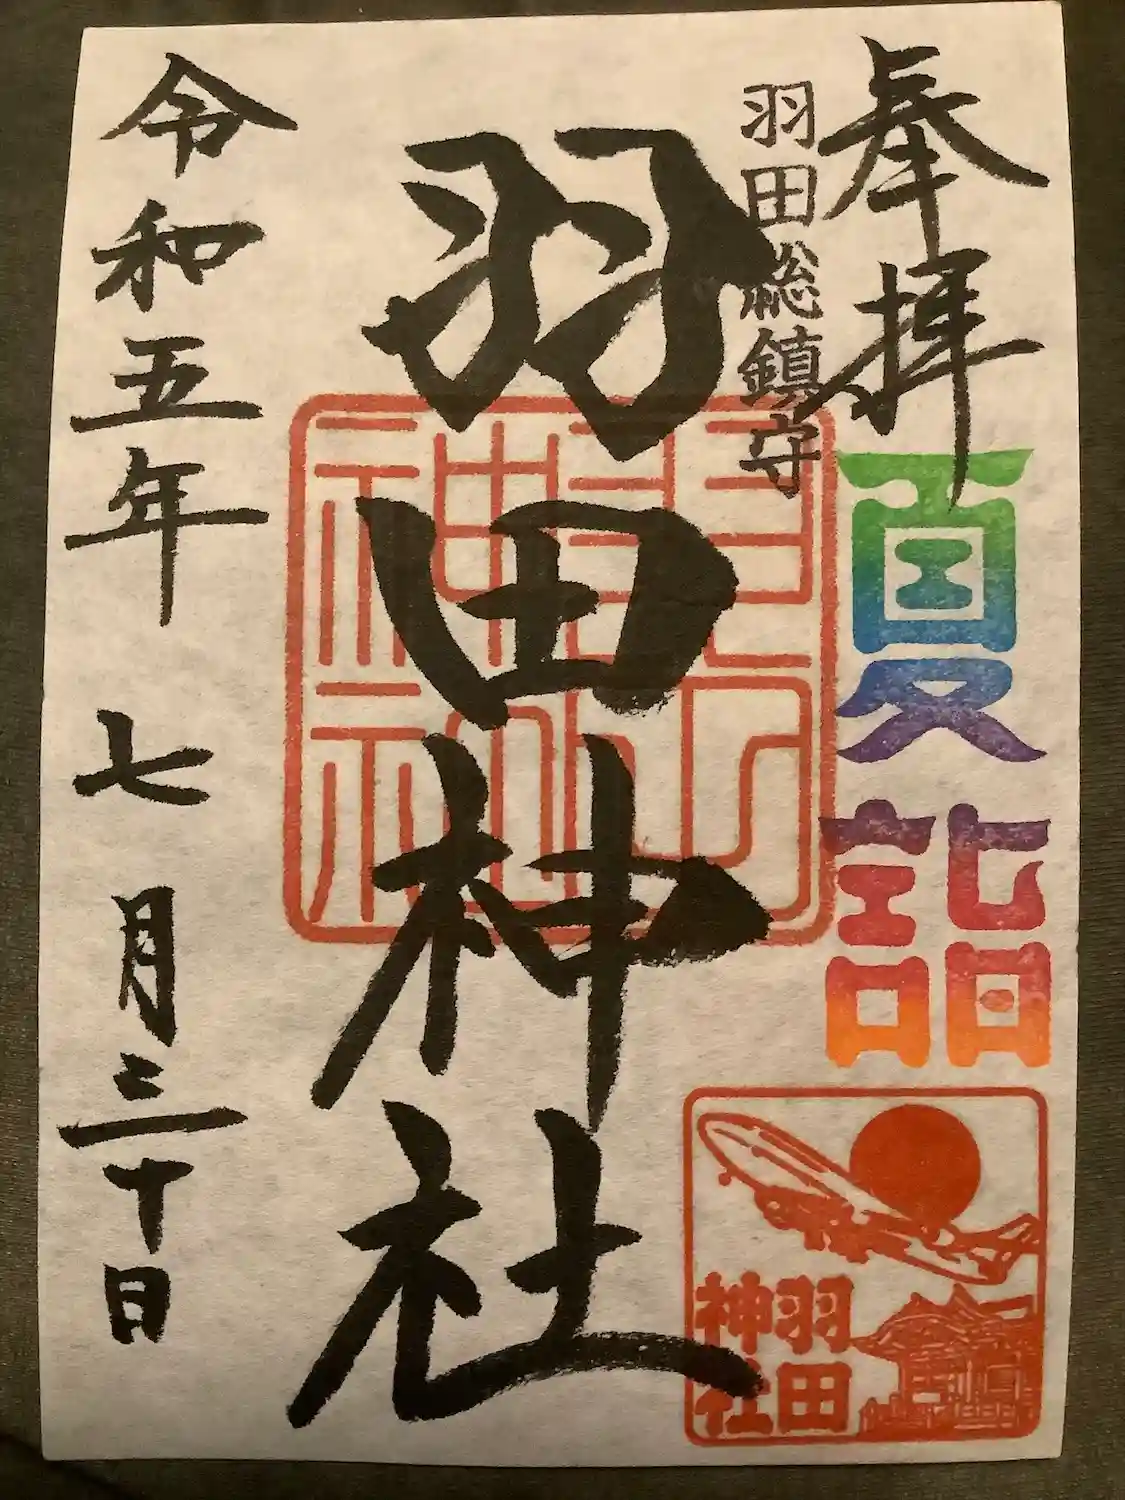 奉拝
夏詣
羽田総鎮守
羽田神社
羽田
神社
令和五年七月三十日